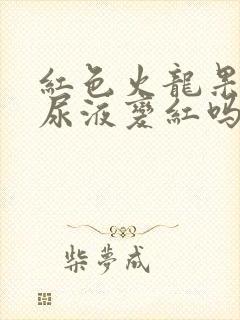 紅色火龍果
尿液變紅嗎
柴夢成